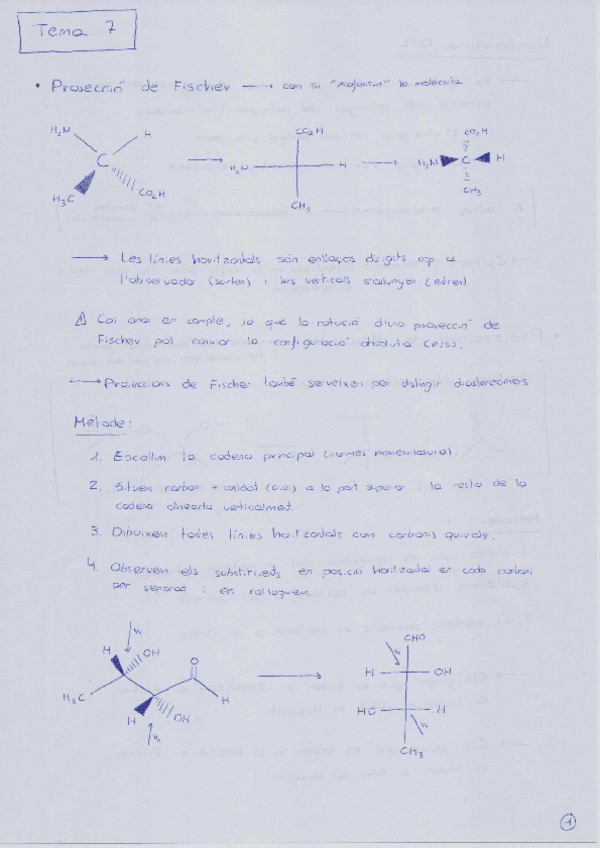 Tema 7
• Projecció de Fischer → com si "xafessim" la molècula
H₂N H CO₂H CO₂H
C H₂N H H₂N C H
H₃C CO₂H CH₃ CH₃
→ Les línies horitzontals són enllaços dirigits cap a
l'observador (sorten) i les verticals s'allunyen (entren).
⚠ Cal anar en compte, ja que la rotació d'una projecció de
Fischer pot canviar la configuració absoluta (R/S).
→ Projeccions de Fischer també serveixen per distingir diastereòmers
Mètode:
1. Escollim la cadena principal (normes nomenclatura).
2. Situem carboni + oxidat (C.O.) a la part superior i la resta de la
cadena alineada verticalment.
3. Dibuixem tantes línies horitzontals com carbonis quirals.
4. Observem els substituents en posició horitzontal en cada carboni
per separat i els col·loquem.
V₁ CHO
H OH O V₁
H OH
H₃C H HO H
H OH V₂
V₂ CH₃
1